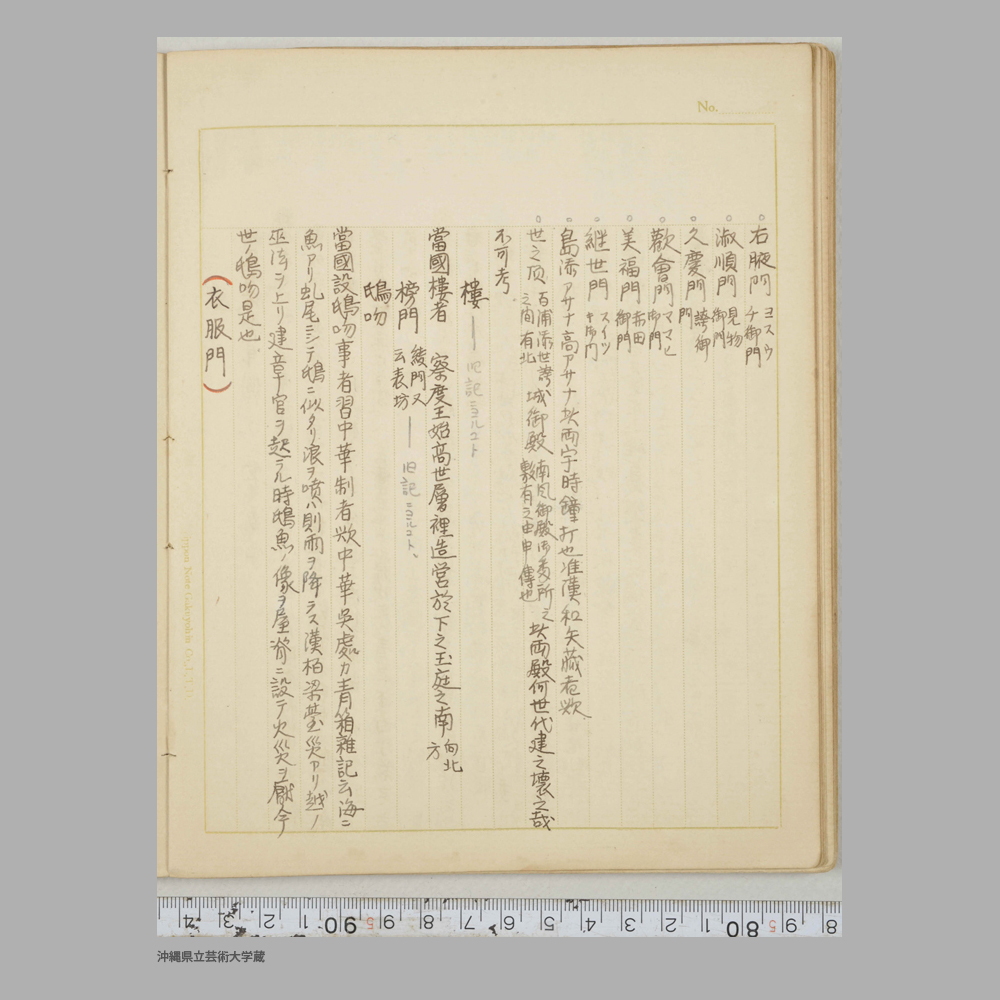 No.
○右掖門 ヨスウチ御門
○淑順門 見物御門
○久慶門 誇御門
○歡會門 ママヒ御門
○美福門 赤田御門
○継世門 スイツキ御門
○島添アサナ高アサナ此両宇時鐘打也准漢和矢蔵者歟、
○世之頂 百浦添世誇之間有北 城御殿 南風御殿御 所之敷有之由申傳也 此両殿何世代建之壊之哉
不可考。
樓― 旧記ニヨルコト
當國樓者 察度王始高世層裡造営於下之玉庭之南方向北
榜門 綾門又云表坊 ― 旧記ニヨルコト、
鴟吻
當國設鴟吻事者習中華制者歟中華吳處カ青箱雜記云海ニ
魚アリ虬尾ニシテ鴟ニ似タリ浪ヲ噴ハ則雨ヲ降ラス漢柏梁䑓災アリ越ノ
巫 ヲ上リ建章宮ヲ起ル時鴟魚ノ像ヲ屋脊ニ設テ火災ヲ厭今
世ノ鴟吻是也
(衣服門)
沖縄県立芸術大学蔵